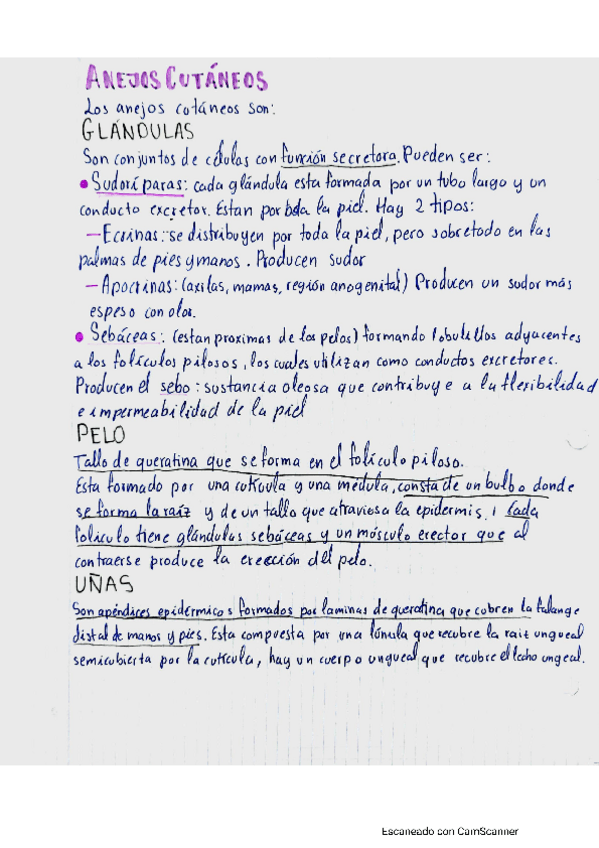 ANEJOS CUTÁNEOS
Los anejos cutáneos son:
GLÁNDULAS
Son conjuntos de células con función secretora. Pueden ser:
• Sudoríparas: cada glándula esta formada por un tubo largo y un
conducto excretor. Estan por toda la piel. Hay 2 tipos:
— Ecrinas: se distribuyen por toda la piel, pero sobretodo en las
palmas de pies y manos. Producen sudor
— Apocrinas: (axilas, mamas, región anogenital) Producen un sudor más
espeso con olor.
• Sebáceas: (estan proximas de los pelos) formando lobulillos adyacentes
a los folículos pilosos, los cuales utilizan como conductos excretores.
Producen el sebo: sustancia oleosa que contribuye a la flexibilidad
e impermeabilidad de la piel
PELO
Tallo de queratina que se forma en el folículo piloso.
Esta formado por una cutícula y una médula, consta de un bulbo donde
se forma la raíz y de un tallo que atraviesa la epidermis, Cada
folículo tiene glándulas sebáceas y un músculo erector que al
contraerse produce la erección del pelo.
UÑAS
Son apéndices epidérmicos formados por laminas de queratina que cubren la falange
distal de manos y pies. Esta compuesta por una lúnula que recubre la raiz ungueal
semicubierta por la cutícula, hay un cuerpo ungueal que recubre el lecho ungeal.
Escaneado con CamScanner